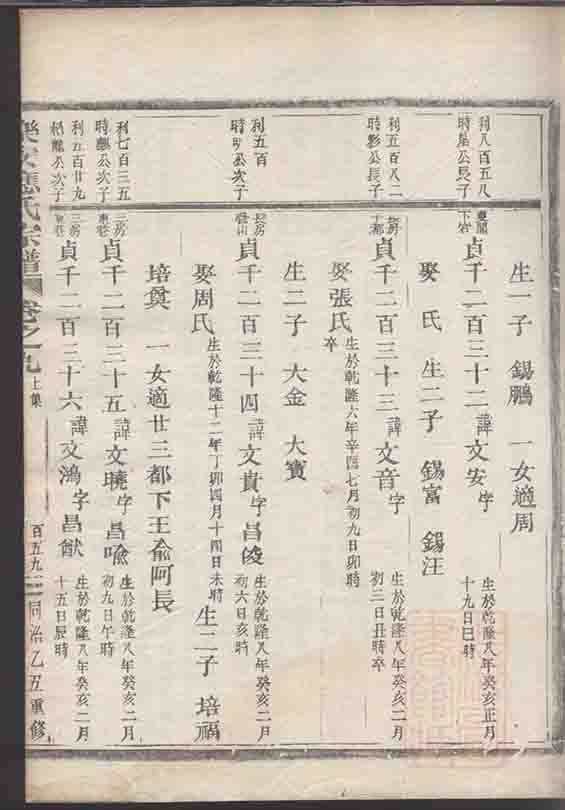 生一子 錫鵬 一女適周
利八百五八
時星公長子
東閣
下宅
貞千二百三十二諱文安字
生於乾隆八年癸亥正月
十九日巳時
娶 氏 生二子 錫富 錫汪
利五百八二
時彰公長子
長房
貞千二百三十三諱文音字
生於乾隆八年癸亥二月
初三日丑時卒
娶張氏
生於乾隆六年辛酉七月初九日卯時
卒
生二子 大金 大寶
利五百
公次子
長房
貞千二百三十四諱文貴字昌陵
生於乾隆八年癸亥二月
初六日亥時
娶周氏
生於乾隆十二年丁卯四月十四日未時
生二子 培福
培奠 一女適廿三都下王俞阿長
利七百三五
時麟公次子
三房
東莊
貞千二百三十五諱文曉字昌喩
生於乾隆八年癸亥二月
初九日午時
利五百廿九
公次子
三房
東莊
貞千二百三十六諱文鴻字昌猷
生於乾隆八年癸亥二月
十五日辰時
氏宗譜 卷之九 上集
百五九 同治乙丑重修